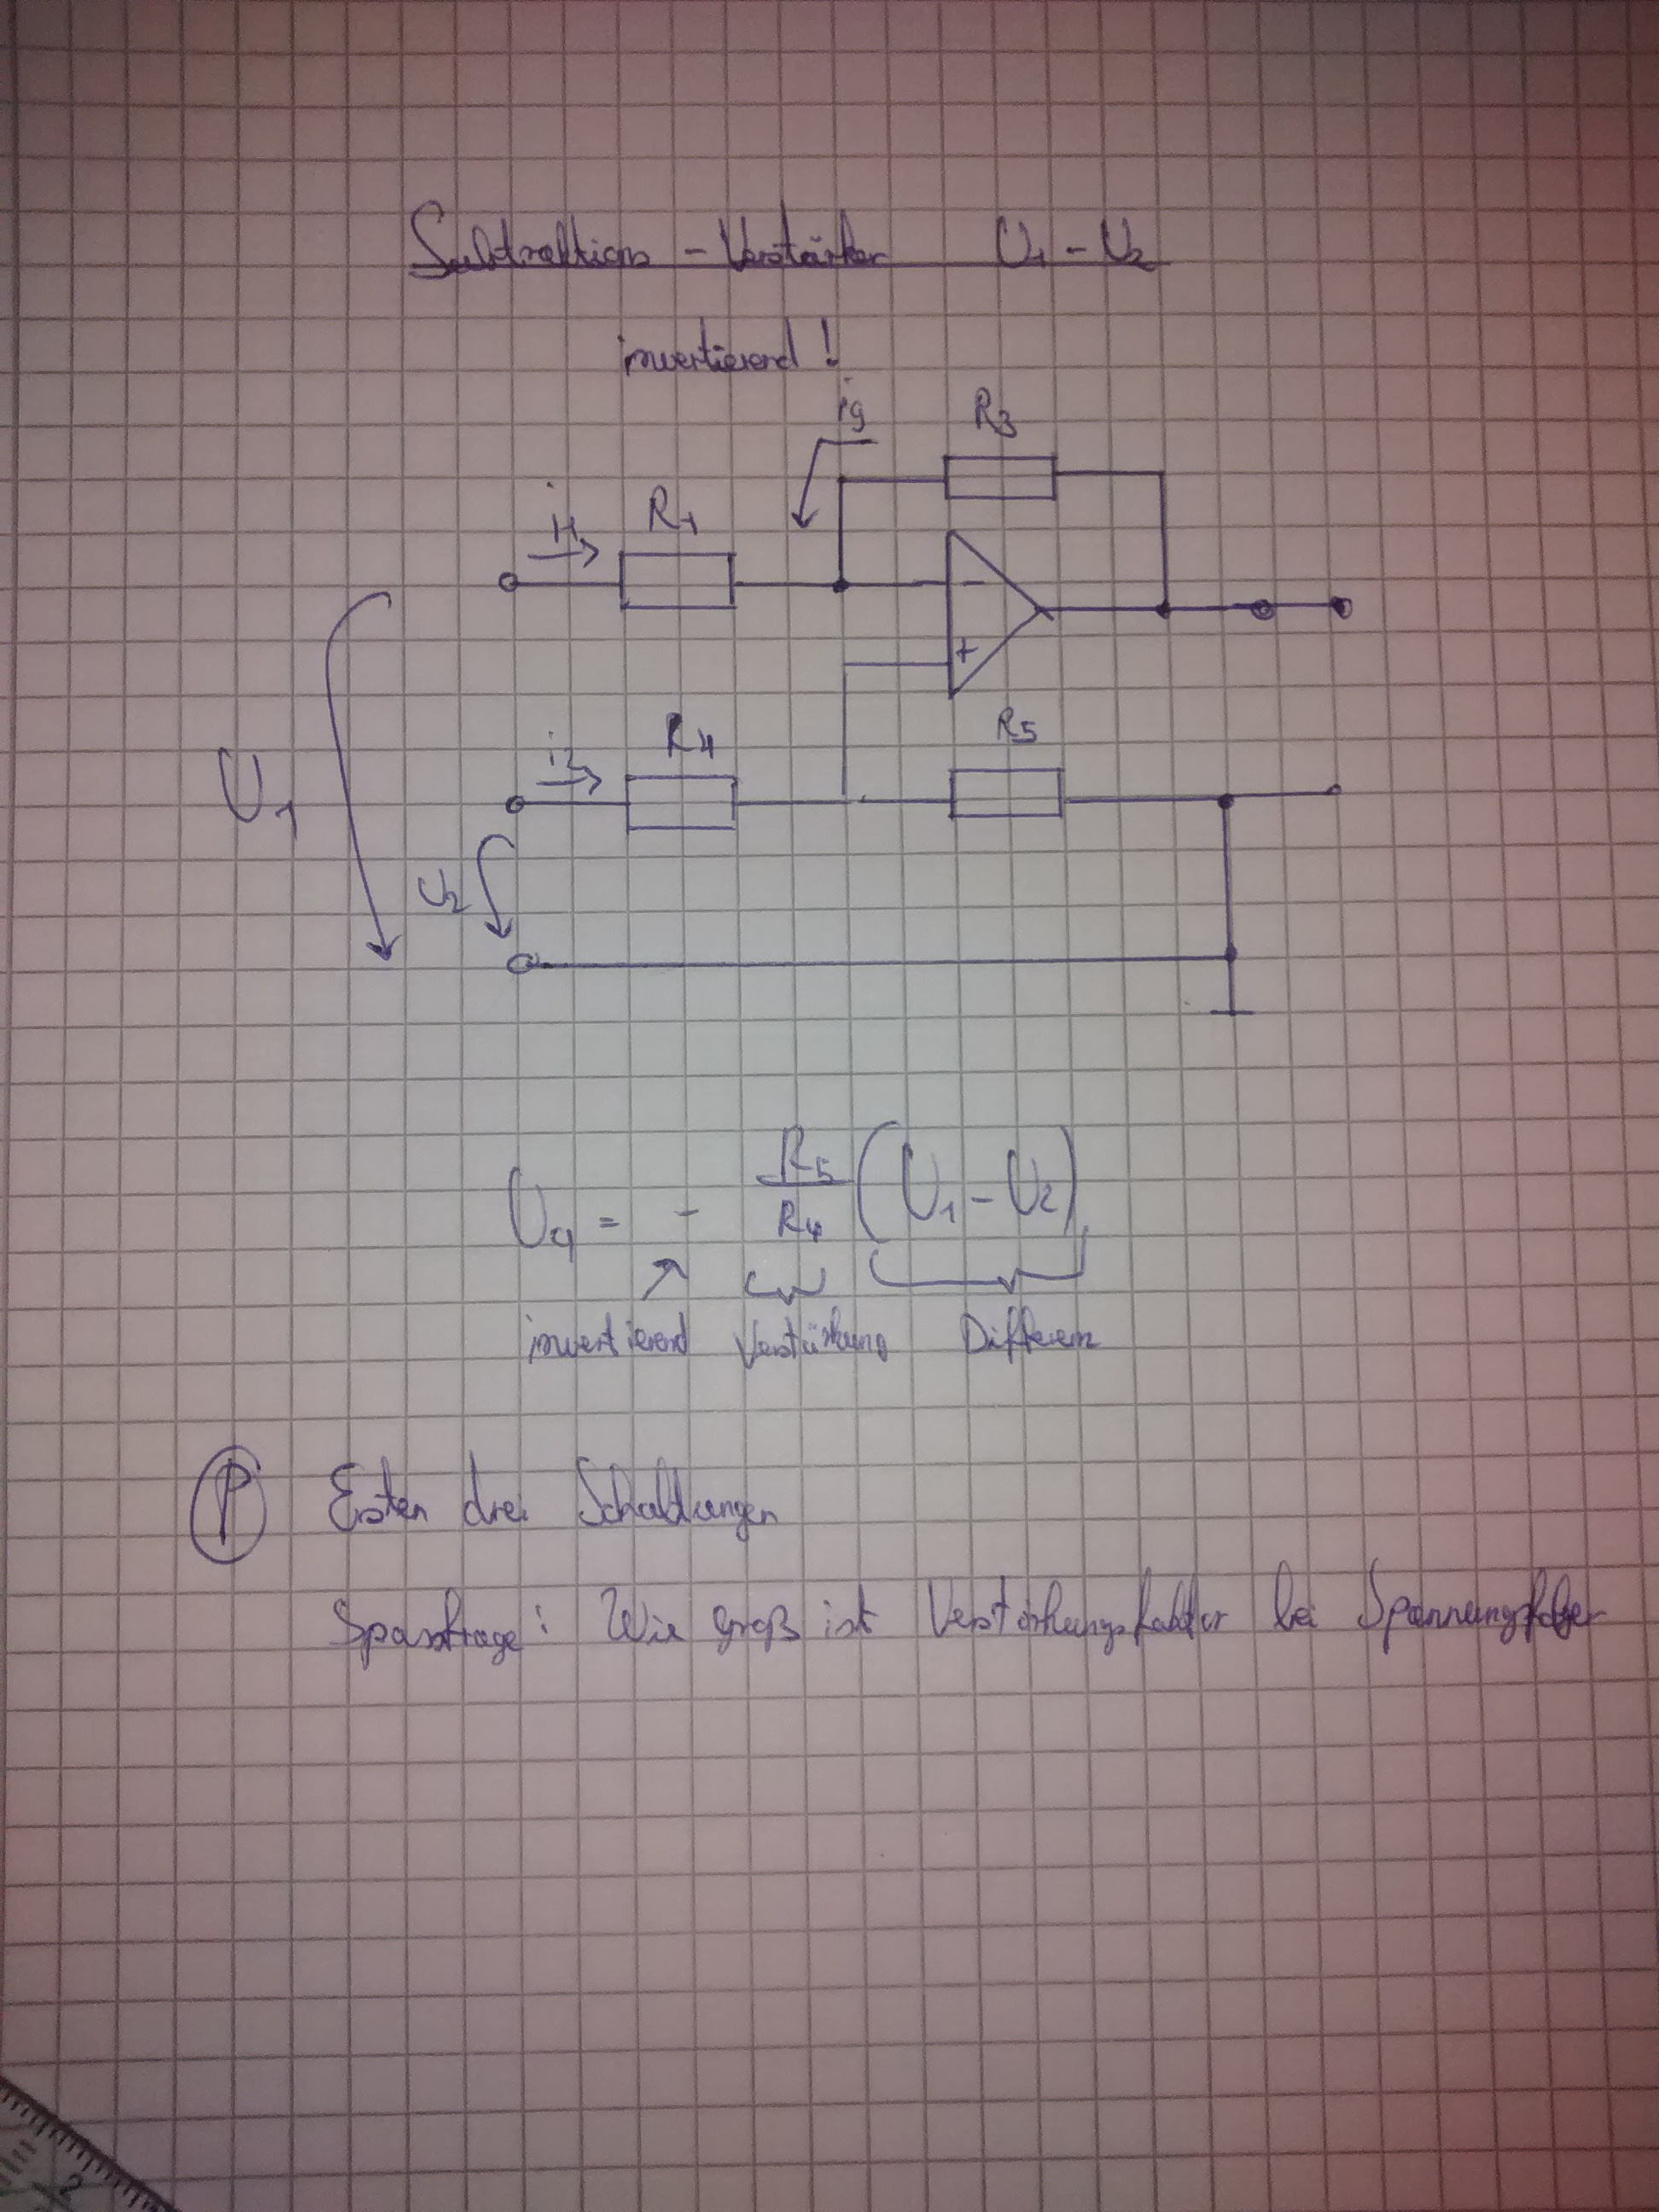 Subtraktions - Verstärker U1 - U2
invertierend !
ig R3
i1 R1
-
+
R4 R5
i2
U1
U2
Ua = - R5/R4 (U1 - U2)
invertierend Verstärkung Differenz
P Ersten drei Schaltungen
Spassfrage: Wie groß ist Verstärkungsfaktor bei Spannungsfolger
2